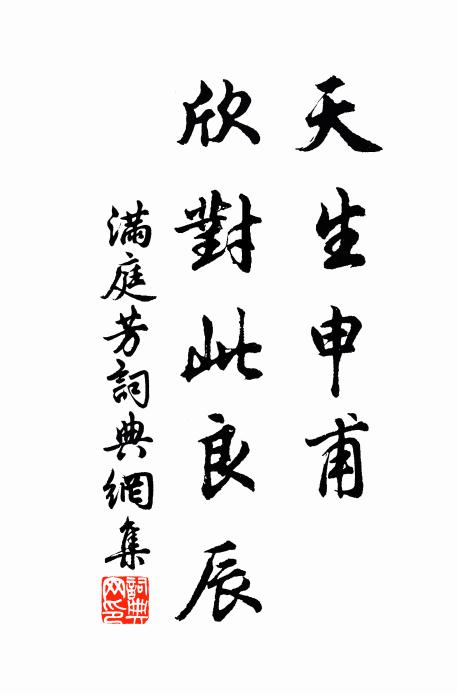 天生申甫
欣對此良辰
滿庭芳詞典網集
詞典網印